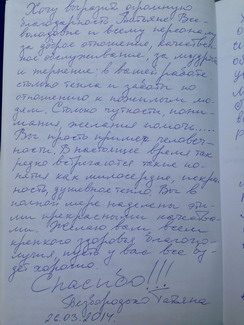 Хочу выразить огромную
благодарность Татьяне Все-
володовне и всему персоналу
за доброе отношение, качествен-
ное обслуживание, за мудрость
и терпение в вашей работе
столько тепла и заботы по
отношению к пожилым лю-
дям. Столько чуткости, пони-
мания желания помочь.....
Вы просто пример человеч-
ности. В настоящее время так
редко встречаются такие по-
нятия как милосердие, искрен-
ность, душевное тепло Вы в
полной мере наделены эти-
ми прекрасными качества-
ми. Желаю вам всем
крепкого здоровья, благопо-
лучия, пусть у вас все бу-
дет хорошо.
Спасибо!!!
Безбородько Татьяна
26.03.2014